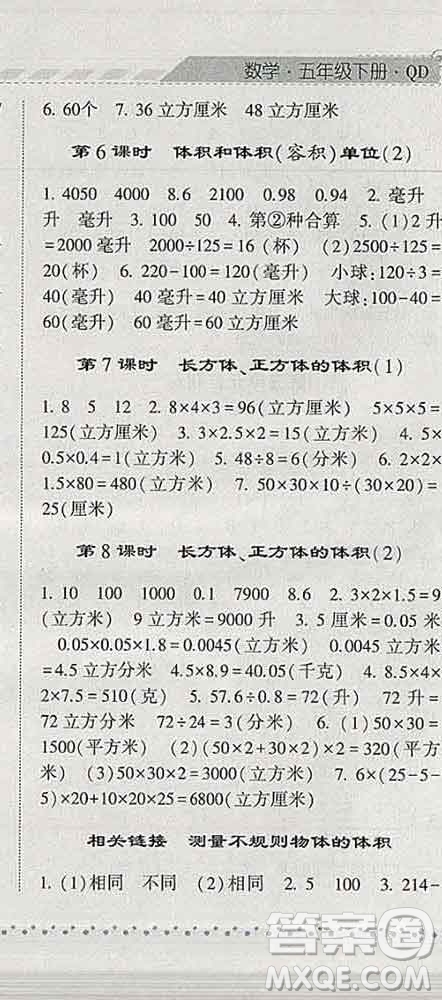 数学·五年级下册·QD
6. 60个 7. 36 立方厘米 48 立方厘米
第 6 课时 体积和体积(容积)单位(2)
1. 4050 4000 8.6 2100 0.98 0.94 2. 毫升
升 毫升 3. 100 50 4. 第②种合算 5. (1)2 升
=2000 毫升 2000÷125=16 (杯) (2)2500÷125=
20(杯) 6. 220-100=120(毫升) 小球:120÷3=
40(毫升) 40 毫升=40 立方厘米 大球:100-40=
60(毫升) 60 毫升=60 立方厘米
第 7 课时 长方体、正方体的体积(1)
1. 8 5 12 2. 8×4×3=96(立方厘米) 5×5×5=
125(立方厘米) 3. 3×2.5×2=15(立方米) 4. 5×
0.5×0.4=1(立方米) 5. 48÷8=6(分米) 6. 2×2×
1.5×80=480(立方米) 7. 50×30×10÷(30×2)=
25(厘米)
第 8 课时 长方体、正方体的体积(2)
1. 10 100 1000 0.1 7900 8.6 2. 3×2×1.5=9
(立方米) 9 立方米=9000 升 3. 5 厘米=0.05 米
0.05×0.05×1.8=0.0045(立方米) 0.0045 立方米
=4.5 立方分米 4.5×8.9=40.05(千克) 4. 8.5×4×
2×7.5=510(克) 5. 57.6÷0.8=72(升) 72 升=
72 立方分米 72÷24=3(分米) 6. (1)50×30=
1500(平方米) (2)(50×2+30×2)×2=320(平方
米) (3)50×30×2=3000(立方米) 7. 6×(25-5-
5)×20+20×25=6800(立方厘米)
相关链接 测量不规则物体的体积
1. (1)相同 不同 (2)相同 2. 5 100 3. 214-
答案圈
MXQE.COM